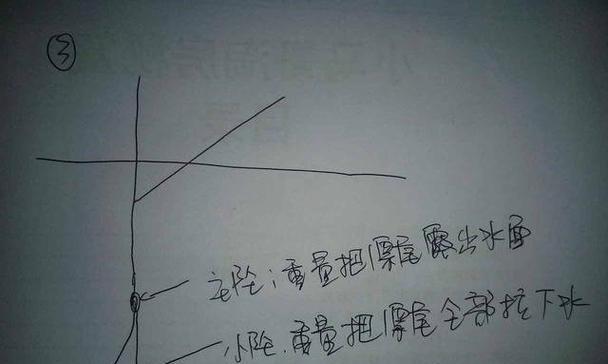 ③
主坠:重量把漂尾露出水面
小坠.重量把漂尾全部拉下水